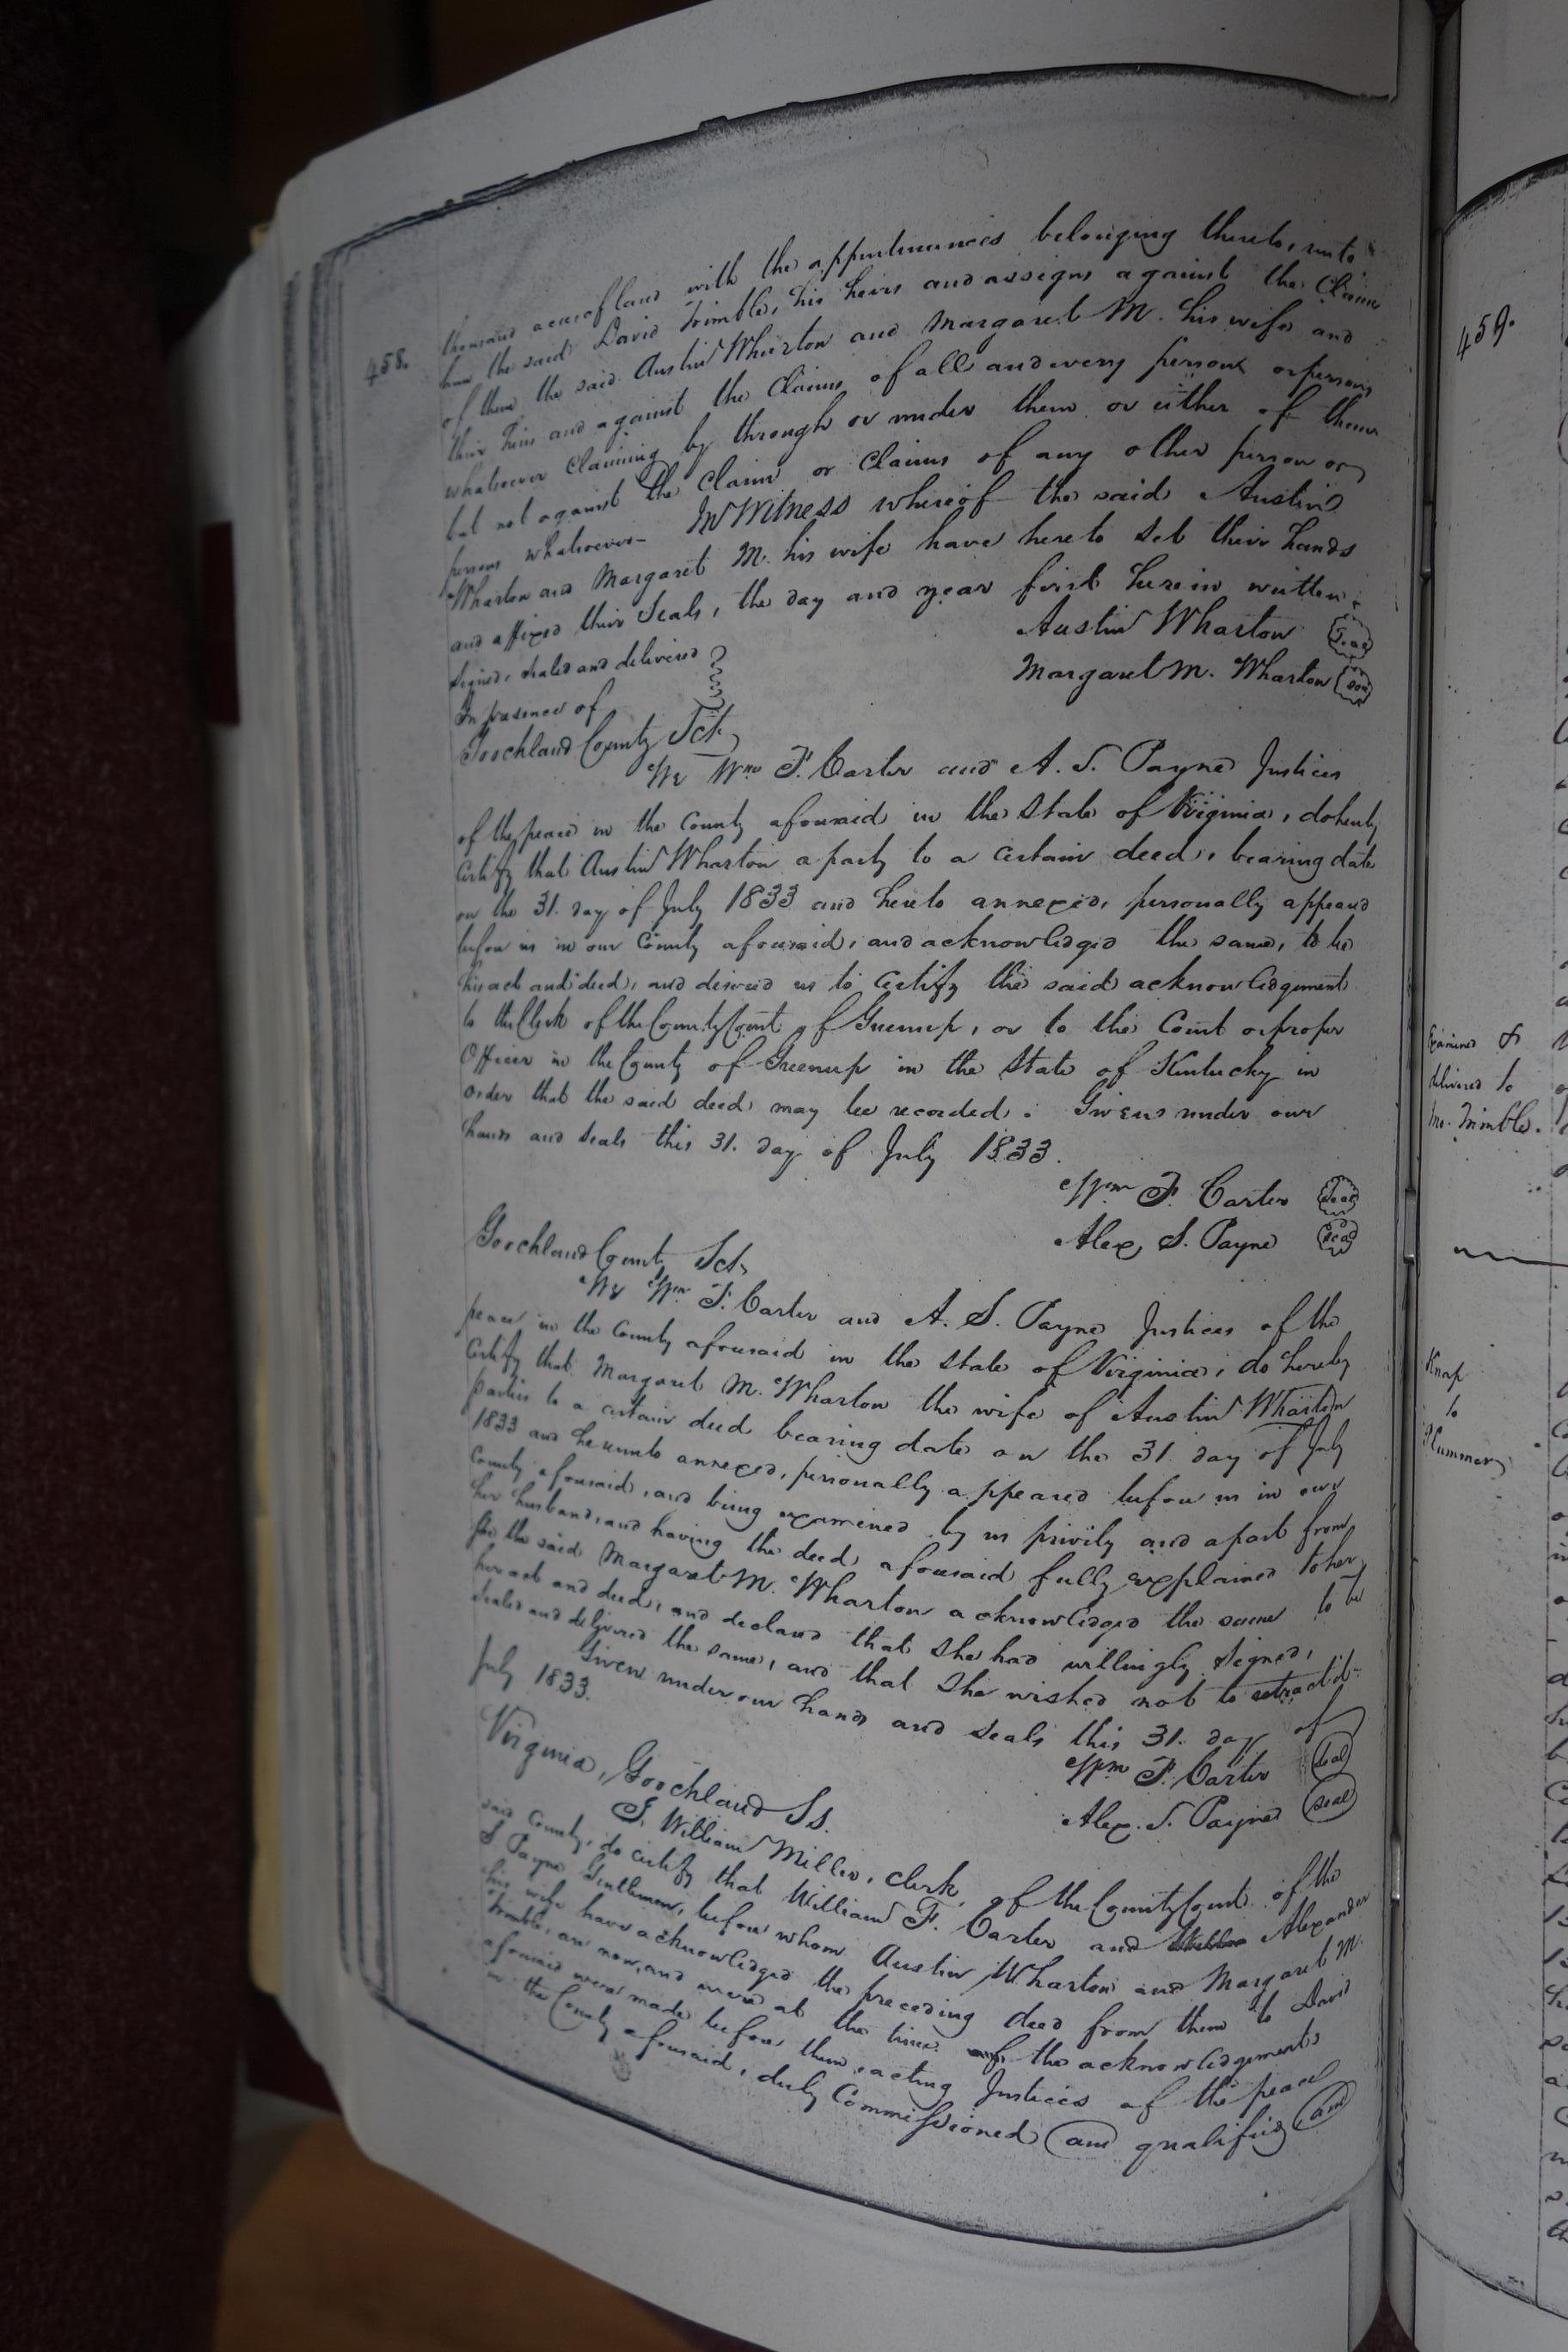 458.
thousand acres of land with the appurtenances belonging thereto, unto
him the said David Trimble, his heirs and assigns against the Claim
of them the said Austin Wharton and Margaret M. his wife and
their heirs and against the Claims of all and every person or persons
whatsoever Claiming by through or under them or either of them
but not against the Claim or Claims of any other person or
persons whatsoever - In Witness whereof the said Austin
Wharton and Margaret M. his wife have hereto set their hands
and affixed their Seals, the day and year first herein written.
Austin Wharton Seal
Signed, sealed and delivered
Margaret M. Wharton Seal
In presence of
Goochland County Sct.
We Wm F. Carter and A. S. Payne Justices
of the peace in the County aforesaid in the State of Virginia, do hereby
certify that Austin Wharton a party to a certain deed, bearing date
on the 31. day of July 1833 and hereto annexed, personally appeared
before us in our County aforesaid, and acknowledged the same, to be
his act and deed, and desired us to certify the said acknowledgement
to the Clerk of the County Court of Greenup, or to the Court or proper
Officer in the County of Greenup in the State of Kentucky in
order that the said deed may be recorded. Given under our
hands and seals this 31. day of July 1833.
Wm F. Carter Seal
Alex, S. Payne Seal
Goochland County Sct.
We Wm F. Carter and A. S. Payne Justices of the
peace in the County aforesaid in the State of Virginia, do hereby
certify that Margaret M. Wharton the wife of Austin Wharton
parties to a certain deed bearing date on the 31 day of July
1833 and hereunto annexed, personally appeared before us in our
County aforesaid, and being examined by us privily and apart from
her husband, and having the deed aforesaid fully explained to her,
she the said Margaret M. Wharton acknowledged the same to be
her act and deed, and declared that she had willingly signed,
sealed and delivered the same, and that she wished not to retract it-
Given under our hands and seals this 31. day of
July 1833.
Wm F. Carter Seal
Alex. S. Payne Seal
Virginia, Goochland Ss.
I, William Miller, Clerk, of the County Court of the
said County, do certify that William F. Carter and Alexander
S Payne Gentlemen, before whom Austin Wharton and Margaret M.
his wife have acknowledged the preceding deed from them to David
Trimble, are now, and were at the time of the acknowledgements
aforesaid were made before them, acting Justices of the peace
in the County aforesaid, duly Commissioned and qualified, and
459.
Examined &
delivered to
Mr. Trimble.
Knap
to
Plummer